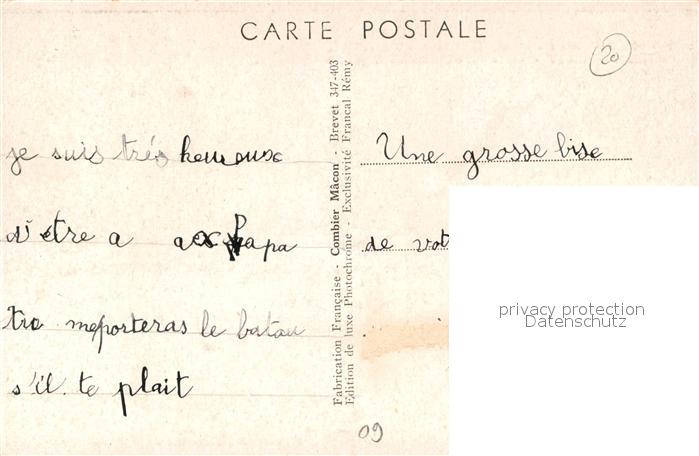 CARTE POSTALE
20
je suis très heureuse
d'être a papa
tu meporteras le bateau
s'il te plait
Fabrication Française - Combier Mâcon - Brevet 347-403
Edition de luxe Photochrome - Exclusivité Francal Rémy
Une grosse bise
de vot
privacy protection
Datenschutz
09